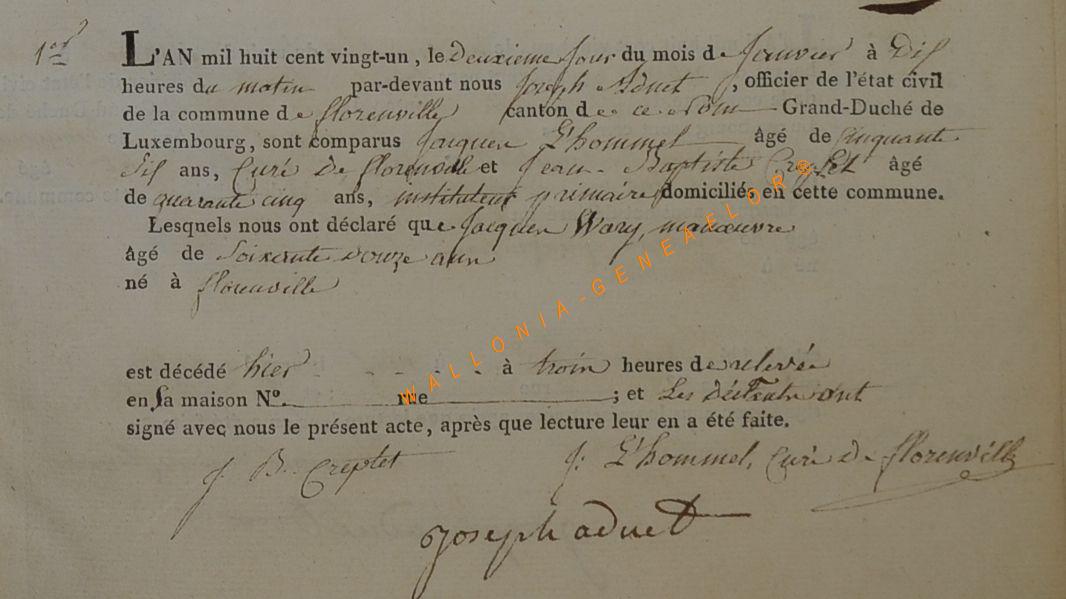 1er
L'AN mil huit cent vingt-un, le Deuxieme jour du mois de Janvier à Dix
heures du matin par-devant nous Joseph Aduet, officier de l'état civil
de la commune de florenville canton de ce Nom Grand-Duché de
Luxembourg, sont comparus Jacques L'hommel âgé de Cinquante
Six ans, Curé De florenville et Jean-Baptiste Creptet âgé
de quarante cinq ans, instituteur primaire domiciliés en cette commune.
Lesquels nous ont déclaré que Jacques Wary, manœuvre
âgé de Soixante Douze ans
né à florenville
est décédé hier à trois heures de relevée
en sa maison No. rue ; et Les Déclarants ont
signé avec nous le présent acte, après que lecture leur en a été faite.
J. B. Creptet J. L'hommel, Curé De florenville
Joseph aduet
WALLONIA-GENEAELOR®